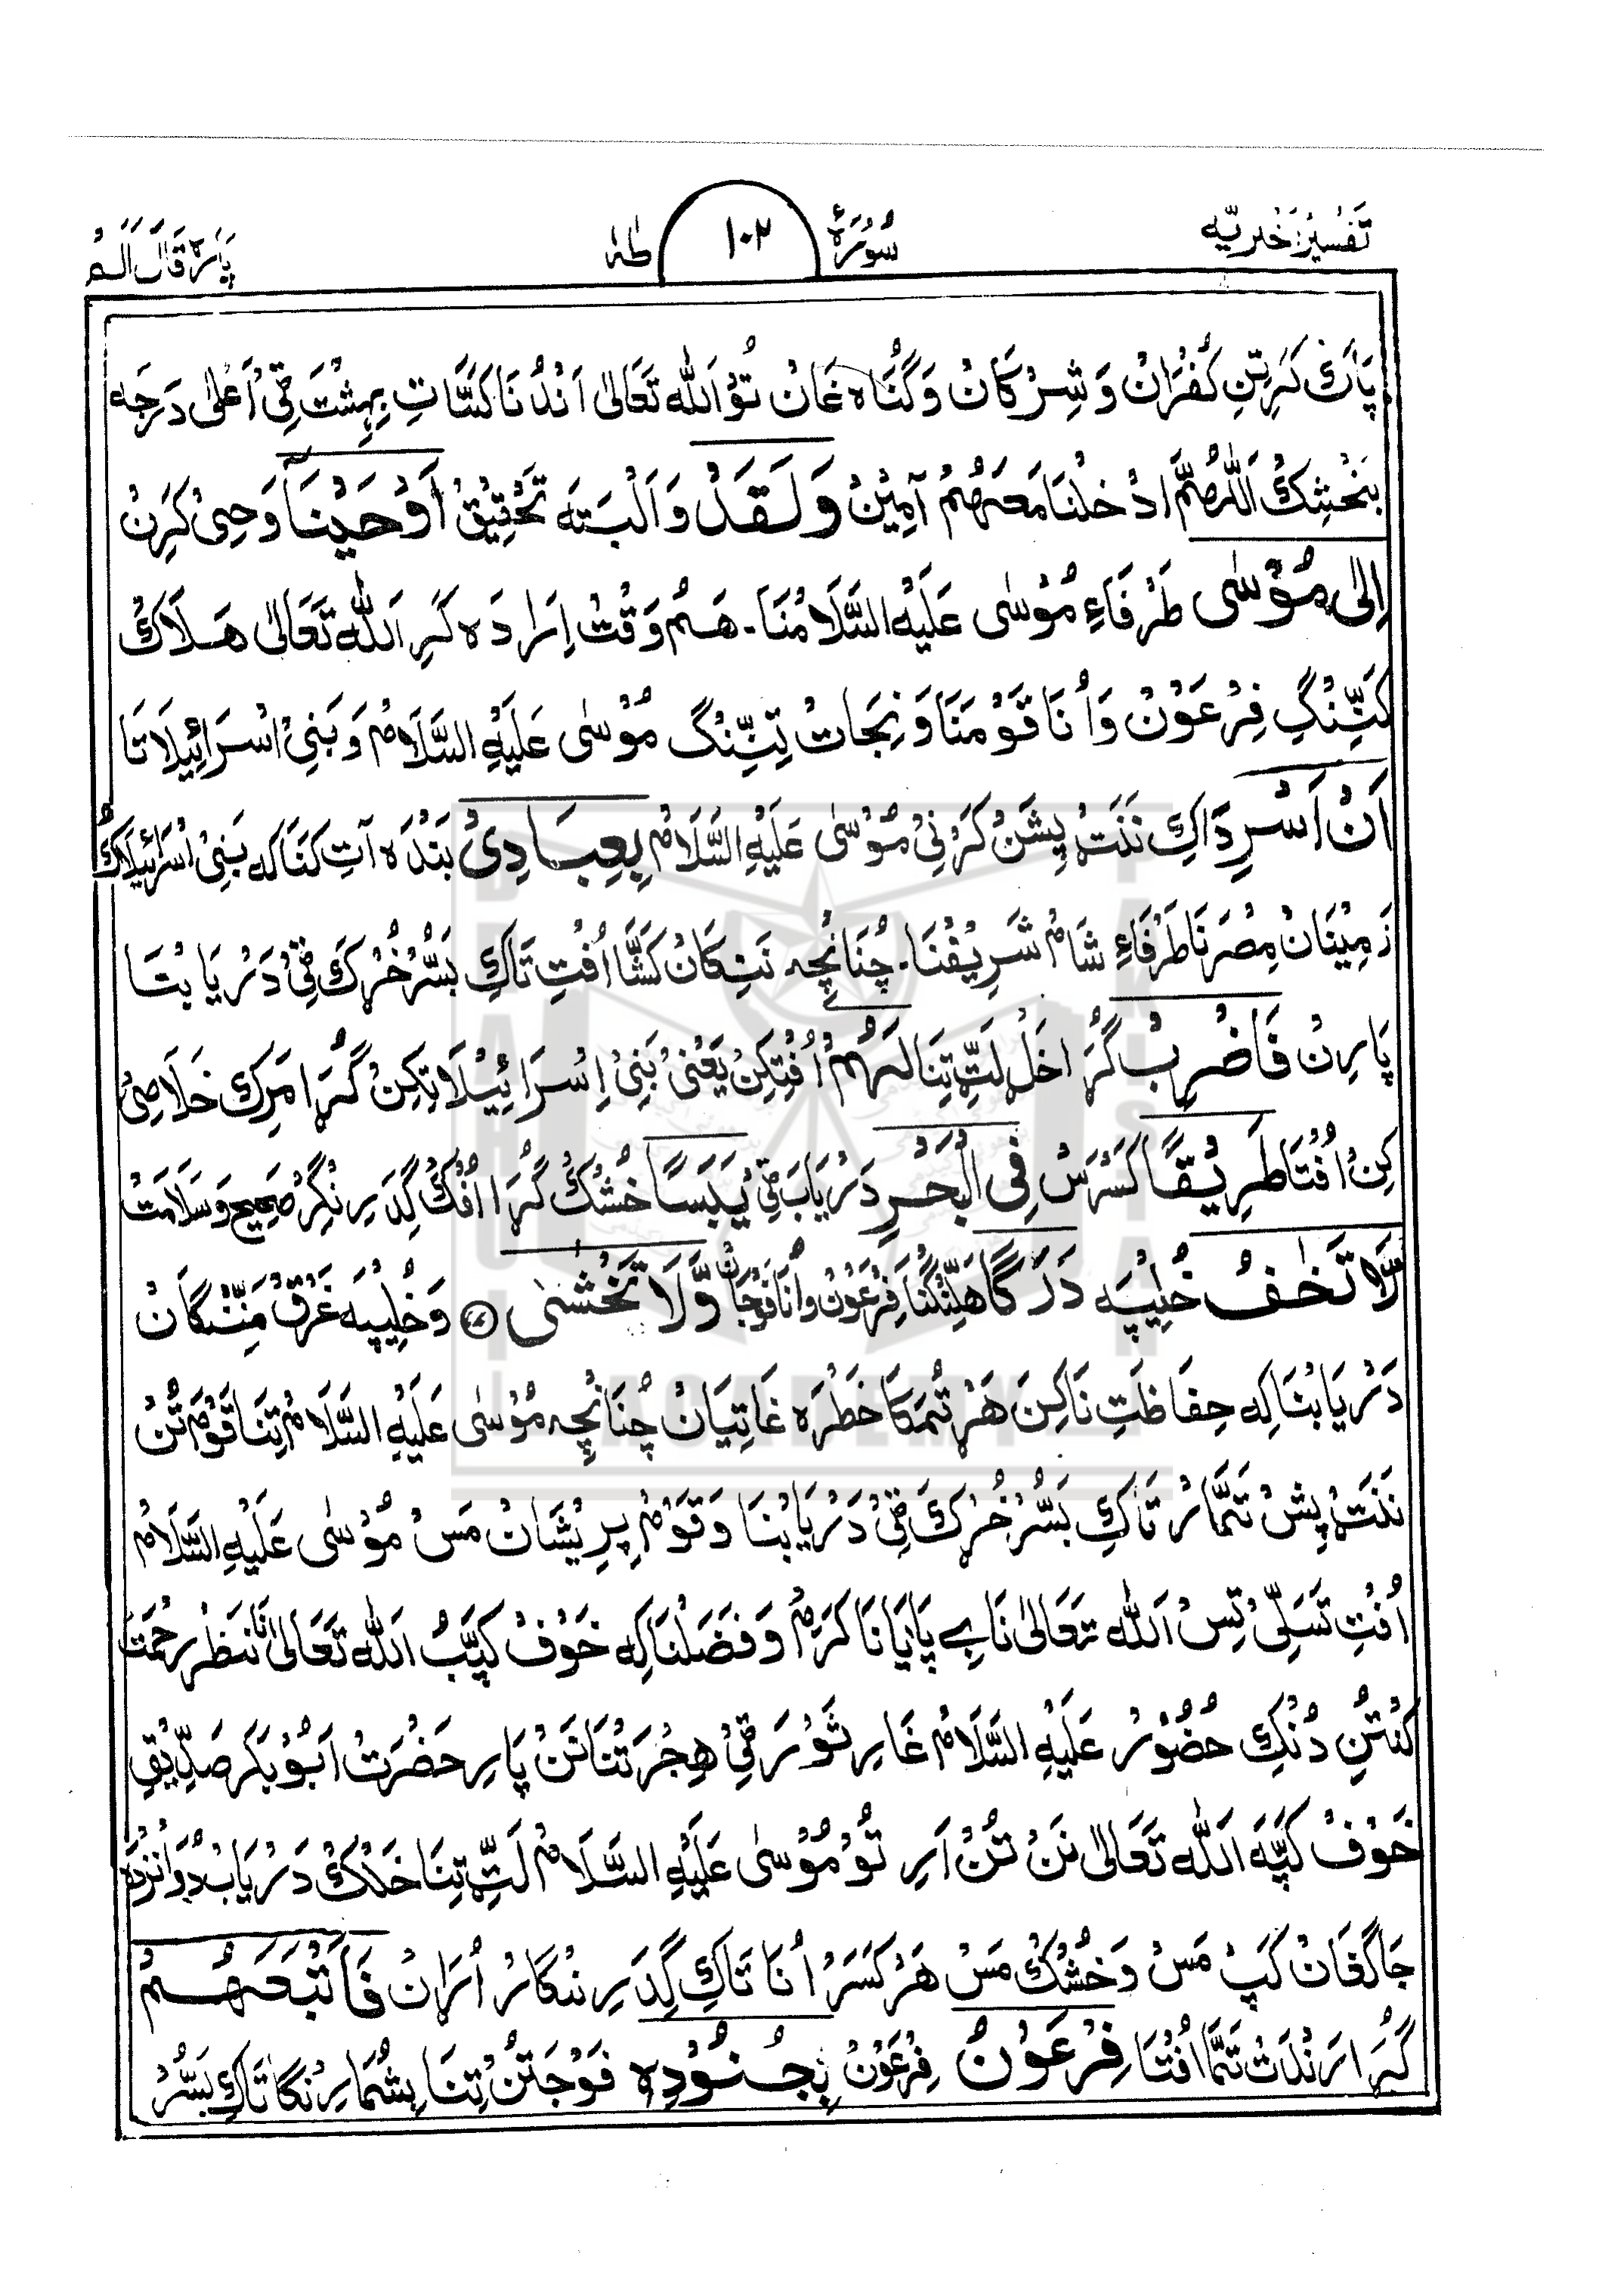 تَفْسِیْرُ اَخْتَرِیَّه سُوْرَةُ ١٠٢ طٰهٰ پَارَہ قَالَ اَلَمْ
پَاک کَرِتِنِ کُفْرَانْ وَ شِرْکَانْ وَ گُنَاہ غَانْ تُوْ اَللّٰه تَعَالٰی اَنْدُنَا کَسَّاتِ بِهِشْتَ ٹِیْ اَعْلٰی دَرَجَه
بَخْشِکْ اَللّٰهُمَّ ادْخِلْنَا مَعَهُمْ آمِیْنْ وَلَقَدْ وَ اَلْبَتَه تَحْقِیْقْ اَوْحَیْنَآ وَحِیْ کَرِنْ
اِلٰی مُوْسٰی طَرْفَاءِ مُوْسٰی عَلَیْهِ السَّلَامْنَا۔ هَمُ وَقْتْ اِرَادَہ کَرِ اَللّٰه تَعَالٰی هَلَاکْ
کَنِّنْگِ فِرْعَوْنْ وَ اُنَا قَوْمَنَا وَ نِجَاتْ تِنِّنْگ مُوْسٰی عَلَیْهِ السَّلَامْ وَ بَنِیْ اِسْرَائِیْلَاتَا
اَنْ اَسْرِ دَاکِ نَنَتْ پِشَنْ کَرْنِیْ مُوْسٰی عَلَیْهِ السَّلَامْ بِعِبَادِیْ بَنْدَہ آتِ کَنَا که بَنِیْ اِسْرَائِیْلَاکْ
زَمِیْنَانْ مِصْرَنَا طَرْفَاءِ شَامْ شَرِیْفْنَا۔ چُنَانْچِه نَنِکَانْ کَشَّا اُفْتِ تَاکِ بَسُّرْ خُرْکَ ٹِیْ دَرْیَابْنَا
پَارِنْ فَاضْرِبْ گُرَا خَلْ لَٹِّ تِنَا لَهُمْ اُفْتِکِنْ یَعْنِیْ بَنِیْ اِسْرَائِیْلَاتِکِنْ گُرَا مَرِکْ خَلَاصِیْ
کِنْ اُفْتَا طَرِیْقًا کَسَرَسْ فِی الْبَحْرِ دَرْیَابَ ٹِیْ یَبَسًا خُشْکْ گُرَا اُفْکْ گِدَرِنْگِرْ صَحِیْح وَ سَلَامَتْ
لَّا تَخٰفُ خُلِیْپَه دَرَکًا هَلِّنْگْنَا فِرْعَوْنْ وَ اُنَا فَوْجَانْ وَّلَا تَخْشٰی ۷۷ وَ خُلِیْپَه غَرْقْ مَنِّنْگَانْ
دَرْیَابْنَا که حِفَاظَتِ نَا کِنَ هَرْ تُمَکَا خَطْرَہ غَاتِیَانْ چُنَانْچِه مُوْسٰی عَلَیْهِ السَّلَامْ تِنَا قَوْمَتُنْ
نَنَتْ پِشْ تَمَّارْ تَاکِ بَسُّرْ خُرْکَ ٹِیْ دَرْیَابْنَا وَ قَوْمْ پِرِیْشَانْ مَسْ مُوْسٰی عَلَیْهِ السَّلَامْ
اُفْتِ تَسَلِّیْ تِسْ اَللّٰه تَعَالٰی نَا بے پَایَانَا کَرَمْ وَ فَضْلْنَا که خَوْفْ کَپَّبْ اَللّٰه تَعَالٰی نَا نَظْرِ رَحْمَتْ
کَنْتُنِ دُنْکِ حُضُوْرْ عَلَیْهِ السَّلَامْ غَارِ ثَوْرَ ٹِیْ هِجْرَتْنَا نَنْ پَارِ حَضْرَتْ اَبُوْبَکَر صَدِّیْقِ
خَوْفْ کَپَّه اَللّٰه تَعَالٰی نَنْ تُنْ اَرِ تُوْ مُوْسٰی عَلَیْهِ السَّلَامْ لَٹِّ تِنَا خَلْکْ دَرْیَابْ دُوَانْزْدَہ
جَاگَغَانْ کَپْ مَسْ وَ خُشْکْ مَسْ هَرْ کَسَرْ اُنَا تَاکِ گِدَرِنْگَارْ اُرَانْ فَاَتْبَعَهُمْ
گُرَا رَنْدَتْ تَمَّا اُفْتَا فِرْعَوْنُ فِرْعَوْنْ بِجُنُوْدِہٖ فَوْجَتُنْ تِنَا بِشُمَارِنْگَا تَاکِ بَسُّرْ